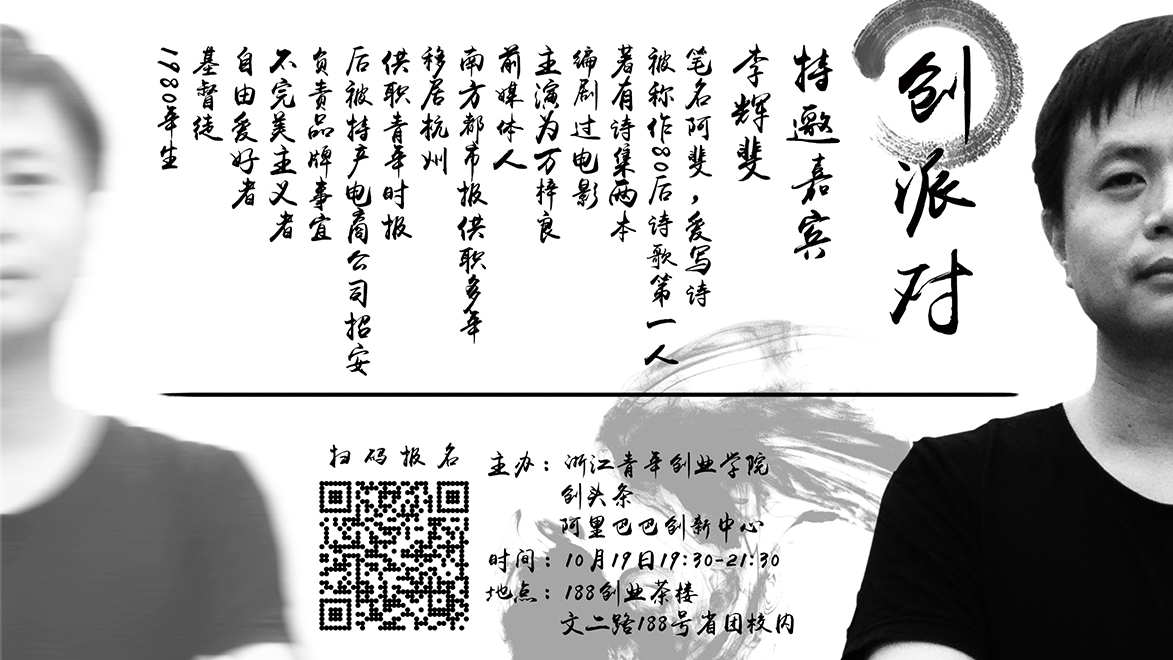 创派对
特邀嘉宾
李辉斐
笔名阿斐，爱写诗
被称作80后诗歌第一人
著有诗集两本
编剧过电影
主演为万梓良
前媒体人
南方都市报供职多年
移居杭州
供职青年时报
后被特产电商公司招安
负责品牌事宜
不完美主义者
自由爱好者
基督徒
1980年生
扫码报名
主办：浙江青年创业学院
创头条
阿里巴巴创新中心
时间：10月19日19:30-21:30
地点：188创业茶楼
文二路188号省团校内